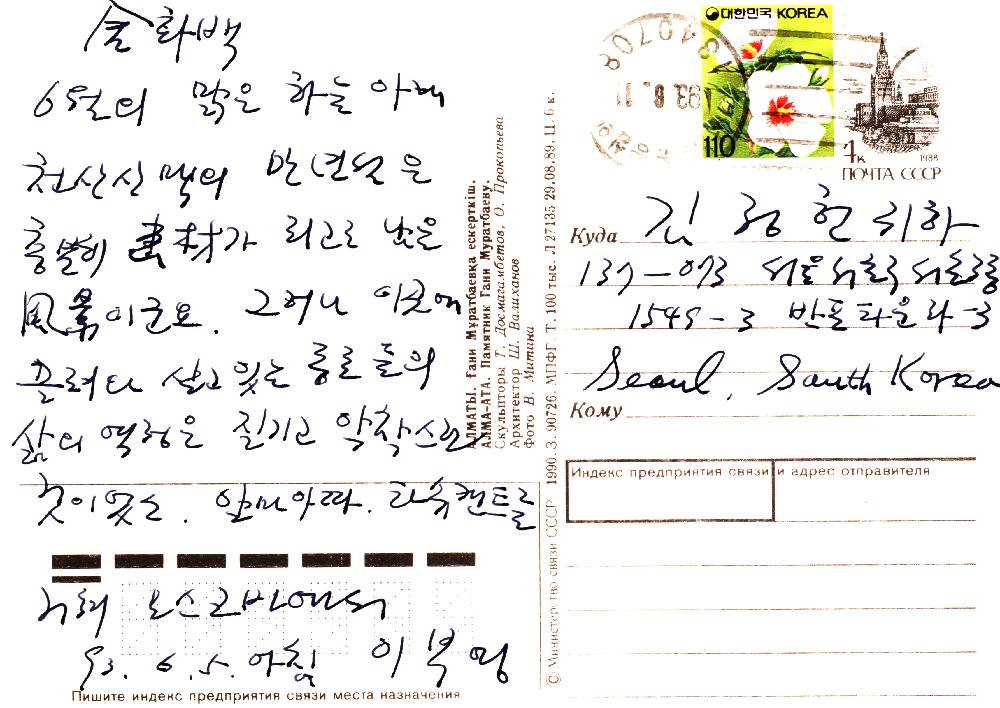 金 화백
6월의 맑은 하늘 아래
천산산맥의 만년설은
충분히 畫材가 되고도 남을
風景이군요. 그러나 이곳에
끌려와 살고 있는 동포들의
삶의 역정은 질기고 악착스런
것이었소. 알마아따. 타슈켄트를
거쳐 모스크바에서
93. 6. 5. 아침 이복
АЛМАТЫ. Ғани Мұратбаевқа ескерткіш.
АЛМА-АТА. Памятник Гани Муратбаеву.
Скульпторы Т. Досмагамбетов, О. Прокопьева
Архитектор Ш. Валиханов
Фото В. Митина
© Министерство связи СССР 1990. З. 90726. МПФГ. Т. 100 тыс. Л 27135 29.08.89. Ц. 6 к.
대한민국 KOREA
110
93. 6. 11
4к
1988
ПОЧТА СССР
Куда 김 귀하
137-073 서울 서초구 서초동
1545-3 반포타운 라-3
Seoul, South Korea
Кому
Индекс предприятия связи и адрес отправителя
Пишите индекс предприятия связи места назначения